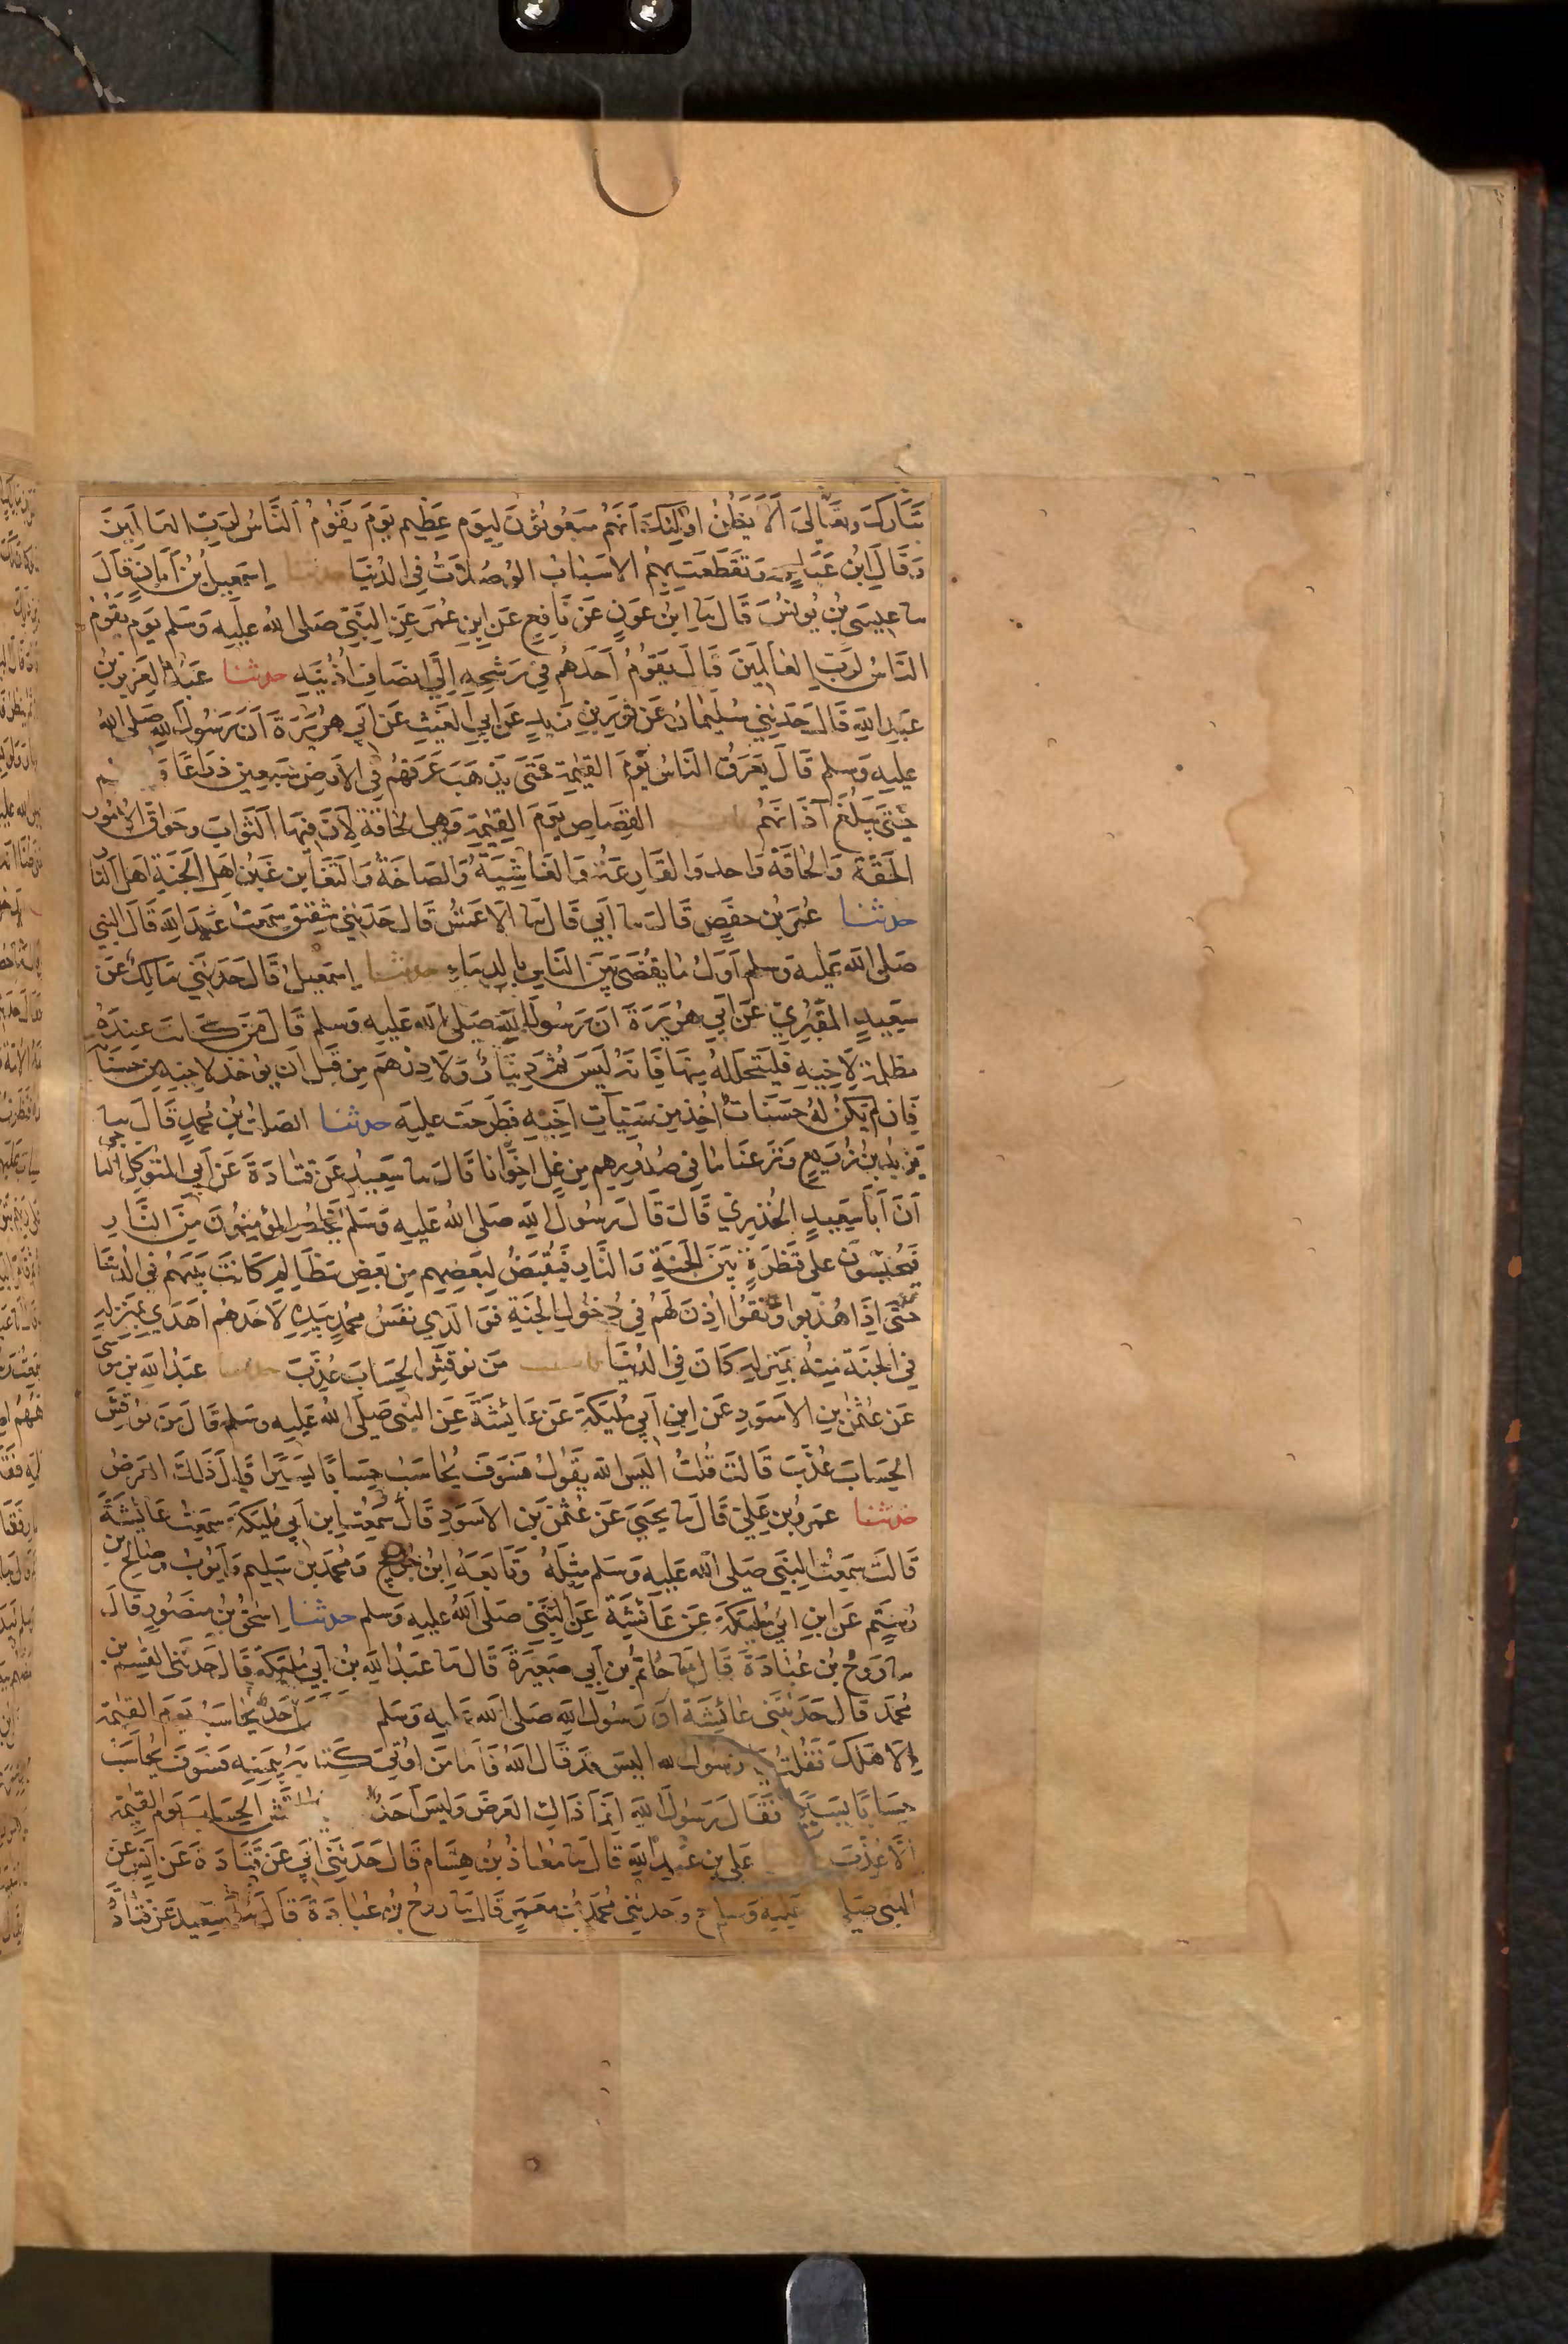 تبارك وتعالى ألا يظن أولئك أنهم مبعوثون ليوم عظيم يوم يقوم الناس لرب العالمين
وقال ابن عباس وتقطعت بهم الأسباب الوصلات في الدنيا حدثنا إسمعيل بن أبان قال
ثنا عيسى بن يونس قال ثنا ابن عون عن نافع عن ابن عمر عن النبي صلى الله عليه وسلم يوم يقوم
الناس لرب العالمين قال يقوم أحدهم في رشحه إلى انصاف أذنيه حدثنا عبد العزيز بن
عبد الله قال حدثني سليمان عن ثور بن زيد عن أبي الغيث عن أبي هريرة أن رسول الله صلى الله
عليه وسلم قال يعرق الناس يوم القيمة حتى يذهب عرقهم في الأرض سبعين ذراعا و
حتى يبلغ آذانهم القصاص يوم القيمة وهي الحاقة لأن فيها الثواب وحواق الأمور
الحقة والحاقة واحد والقارعة والغاشية والصاخة والتغابن غبن أهل الجنة أهل النار
حدثنا عمر بن حفص قال ثنا أبي قال ثنا الأعمش قال حدثني شقيق سمعت عبد الله قال النبي
صلى الله عليه وسلم أول ما يقضى بين الناس بالدماء حدثنا إسمعيل قال حدثني مالك عن
سعيد المقبري عن أبي هريرة أن رسول الله صلى الله عليه وسلم قال من كانت عنده
مظلمة لأخيه فليتحلله منها فإنه ليس ثم دينار ولا درهم من قبل أن يؤخذ لأخيه من حسناته
فإن لم يكن له حسنات أخذ من سيئات أخيه فطرحت عليه حدثنا الصلت بن محمد قال ثنا
يزيد بن زريع ونزعنا ما في صدورهم من غل إخوانا قال ثنا سعيد عن قتادة عن أبي المتوكل الناجي
أن أبا سعيد الخدري قال قال رسول الله صلى الله عليه وسلم يخلص المؤمنون من النار
فيحبسون على قنطرة بين الجنة والنار فيقتص لبعضهم من بعض مظالم كانت بينهم في الدنيا
حتى إذا هذبوا ونقوا أذن لهم في دخول الجنة فوالذي نفس محمد بيده لأحدهم أهدى بمنزله
في الجنة منه بمنزله كان في الدنيا باب من نوقش الحساب عذب حدثنا عبد الله بن موسى
عن عثمن بن الأسود عن ابن أبي مليكة عن عائشة عن النبي صلى الله عليه وسلم قال من نوقش
الحساب عذب قالت قلت أليس الله يقول فسوف يحاسب حسابا يسيرا قال ذلك العرض
حدثنا عمرو بن علي قال ثنا يحيى عن عثمن بن الأسود قال سمعت ابن أبي مليكة سمعت عائشة
قالت سمعت النبي صلى الله عليه وسلم مثله وتابعه ابن جريج ومحمد بن سليم وأيوب وصالح بن
رستم عن ابن أبي مليكة عن عائشة عن النبي صلى الله عليه وسلم حدثنا إسحق بن منصور قال
ثنا روح بن عبادة قال ثنا حاتم بن أبي صغيرة قال ثنا عبد الله بن أبي مليكة قال حدثني القسم بن
محمد قال حدثتني عائشة أن رسول الله صلى الله عليه وسلم أحد يحاسب يوم القيمة
إلا هلك فقلت يا رسول الله أليس قد قال الله فأما من أوتي كتابه بيمينه فسوف يحاسب
حسابا يسيرا فقال رسول الله إنما ذلك العرض وليس أحد الحساب يوم القيمة
إلا عذب علي بن عبد الله قال ثنا معاذ بن هشام قال حدثني أبي عن قتادة عن أنس عن
النبي صلى عليه وسلم ح وحدثني محمد بن معمر قال ثنا روح بن عبادة قال ثنا سعيد عن قتادة